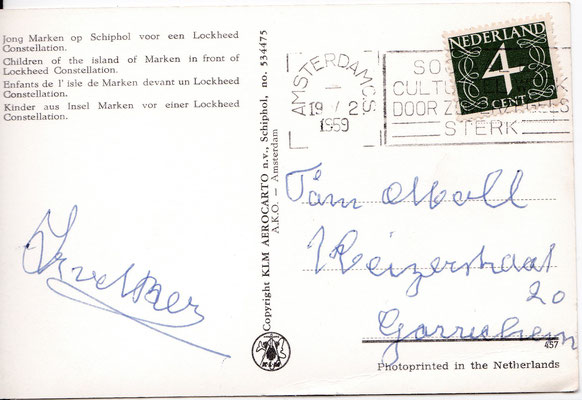 Jong Marken op Schiphol voor een Lockheed
Constellation.
Children of the island of Marken in front of
Lockheed Constellation.
Enfants de l' isle de Marken devant un Lockheed
Constellation.
Kinder aus Insel Marken vor einer Lockheed
Constellation.
Copyright KLM AEROCARTO n.v., Schiphol, no. 534475
A.K.O. — Amsterdam
AMSTERDAM CS
19 / 2
1959
SO
CULTU
DOOR Z
STERK
NEDERLAND
4
CENT
Keizerstraat
20
Gorruchem
457
Photoprinted in the Netherlands